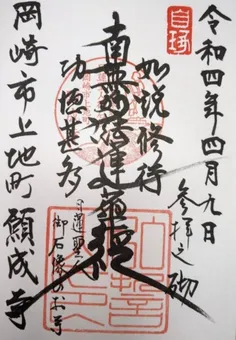 令和四年四月九日
参拝之砌
如説修行
南無妙法蓮華経
功徳甚多
日蓮聖人
御石像のお寺
岡崎市上地町 願成寺